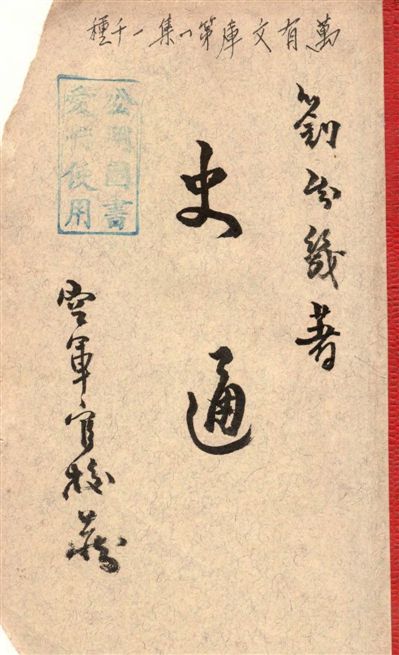 萬有文庫第一集一千種
劉知幾著
史通
公圖書
愛使用
空軍官校藏